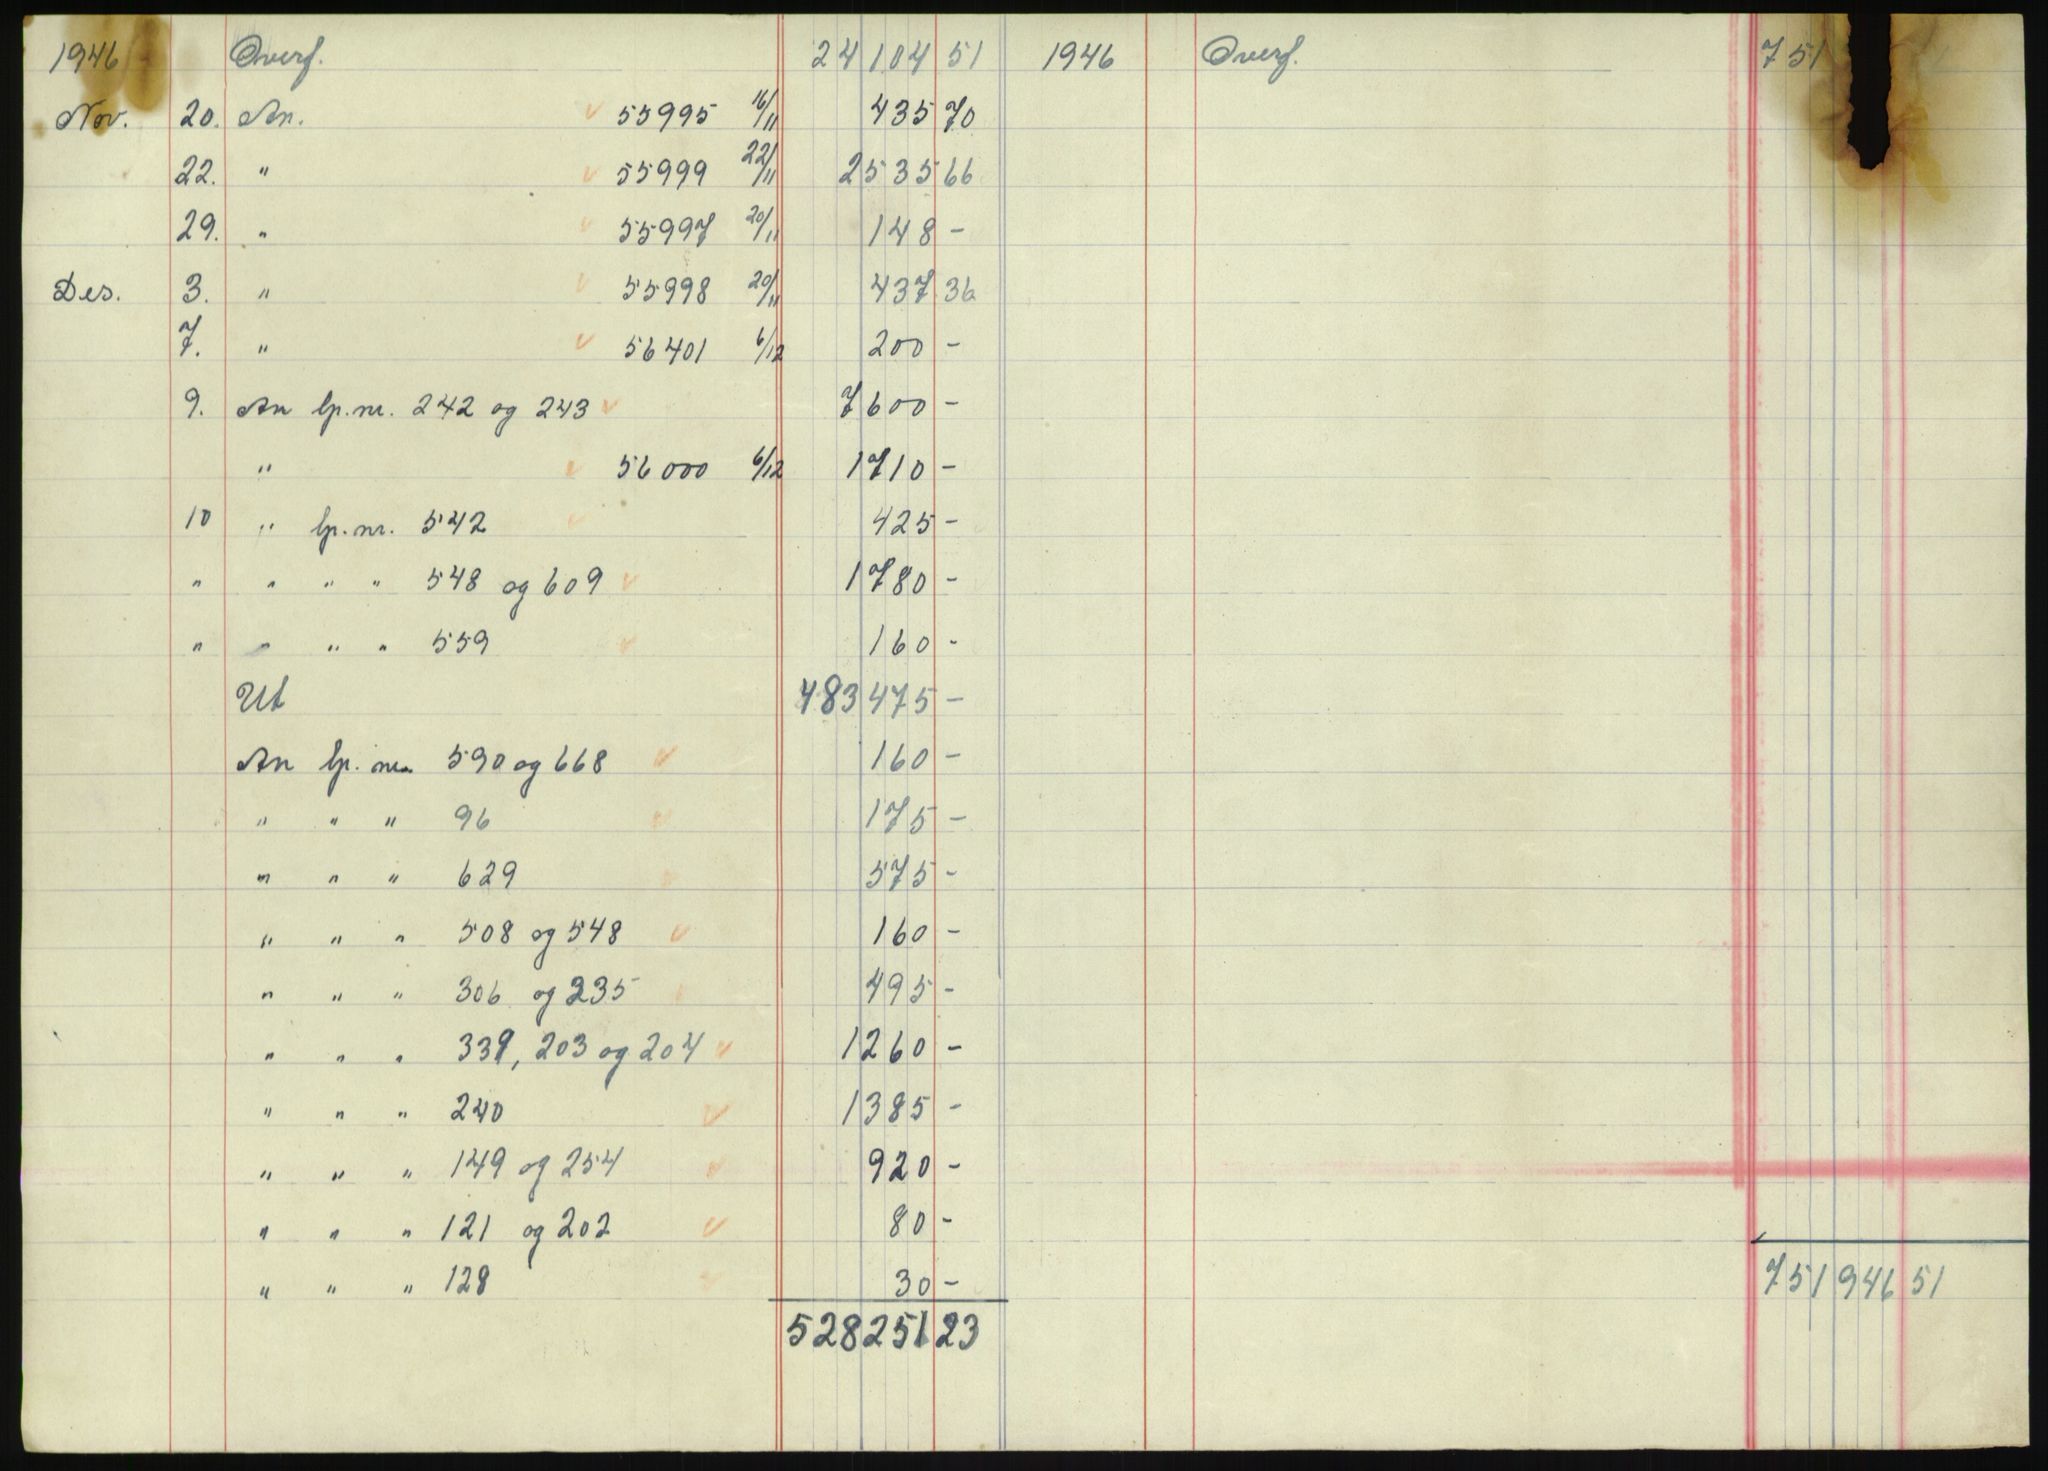 1946 Overf. 24 104 51
Nov. 20. An. 55995 16/11 435 70
22. " 55999 22/11 2 535 66
29. " 55997 20/11 148 -
Des. 3. " 55998 20/11 437 36
7. " 56401 6/12 200 -
9. An lp.nr. 242 og 243 7 600 -
" 56000 6/12 1 710 -
10 " lp.nr. 542 425 -
" " " " 548 og 609 1 780 -
" " " " 559 160 -
Ut 483 475 -
An lp. nr. 590 og 668 160 -
" " " 96 175 -
" " " 629 575 -
" " " 508 og 548 160 -
" " " 306 og 235 495 -
" " " 339, 203 og 204 1 260 -
" " " 240 1 385 -
" " " 149 og 254 920 -
" " " 121 og 202 80 -
" " " 128 30 -
528 251 23
1946 Overf. 751
751 946 51